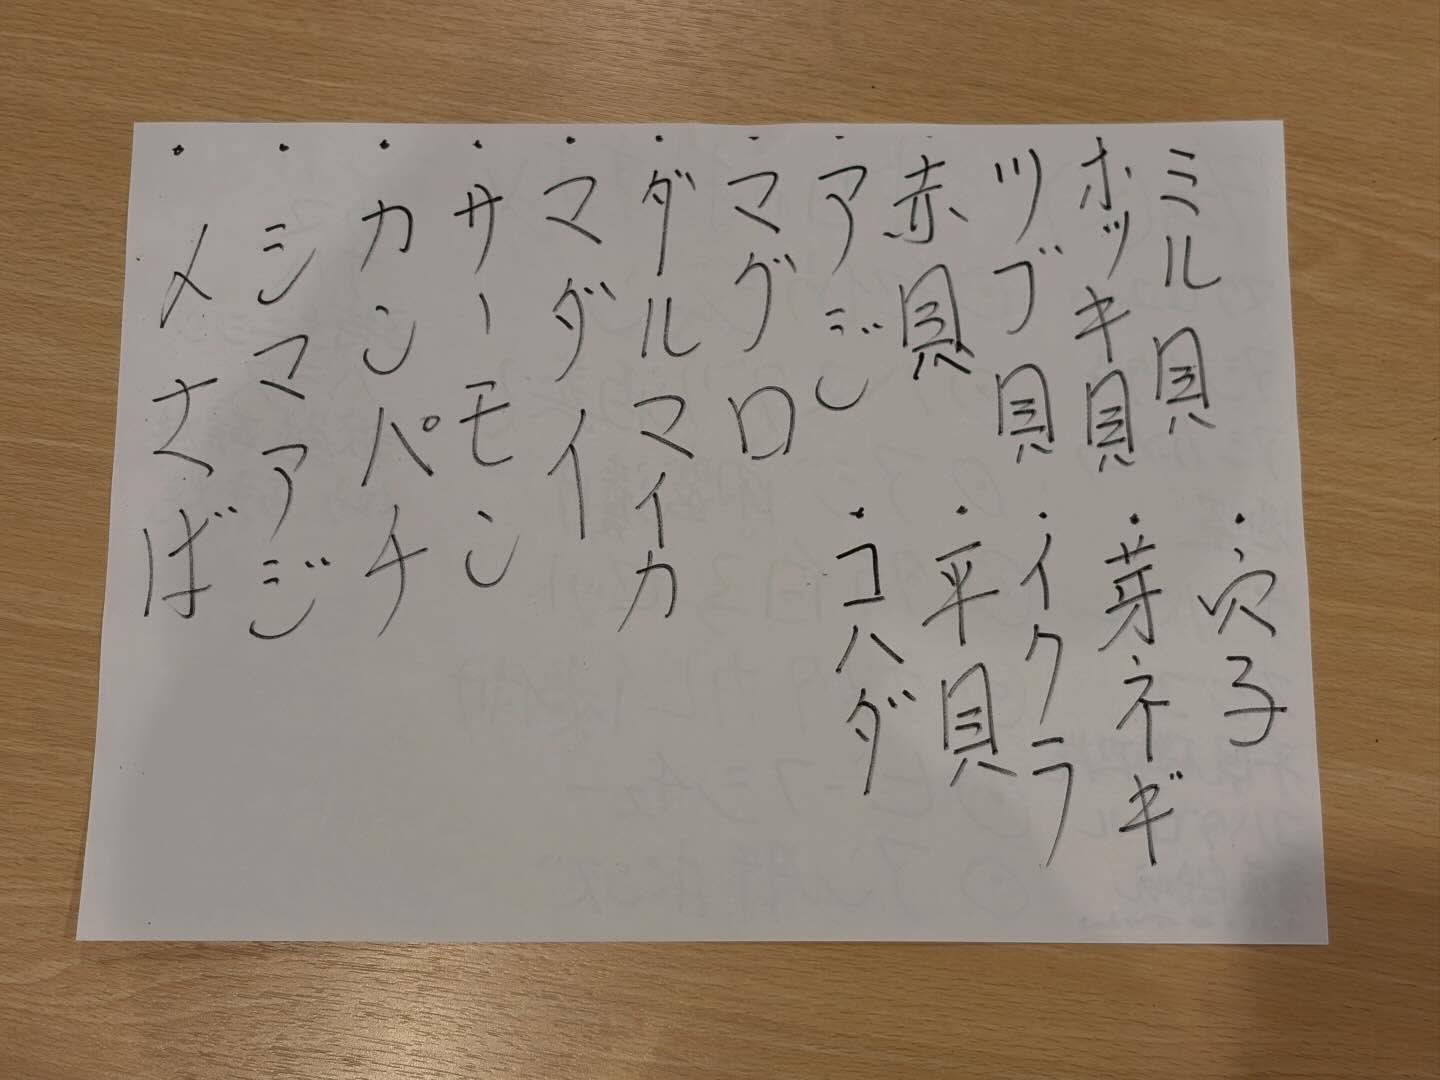 ミル貝
ホッキ貝
ツブ貝
赤貝
・アジ
・マグロ
・ダルマイカ
・マダイ
・サーモン
・カンパチ
・シマアジ
・〆さば
・穴子
・芽ネギ
・イクラ
・平貝
・コハダ